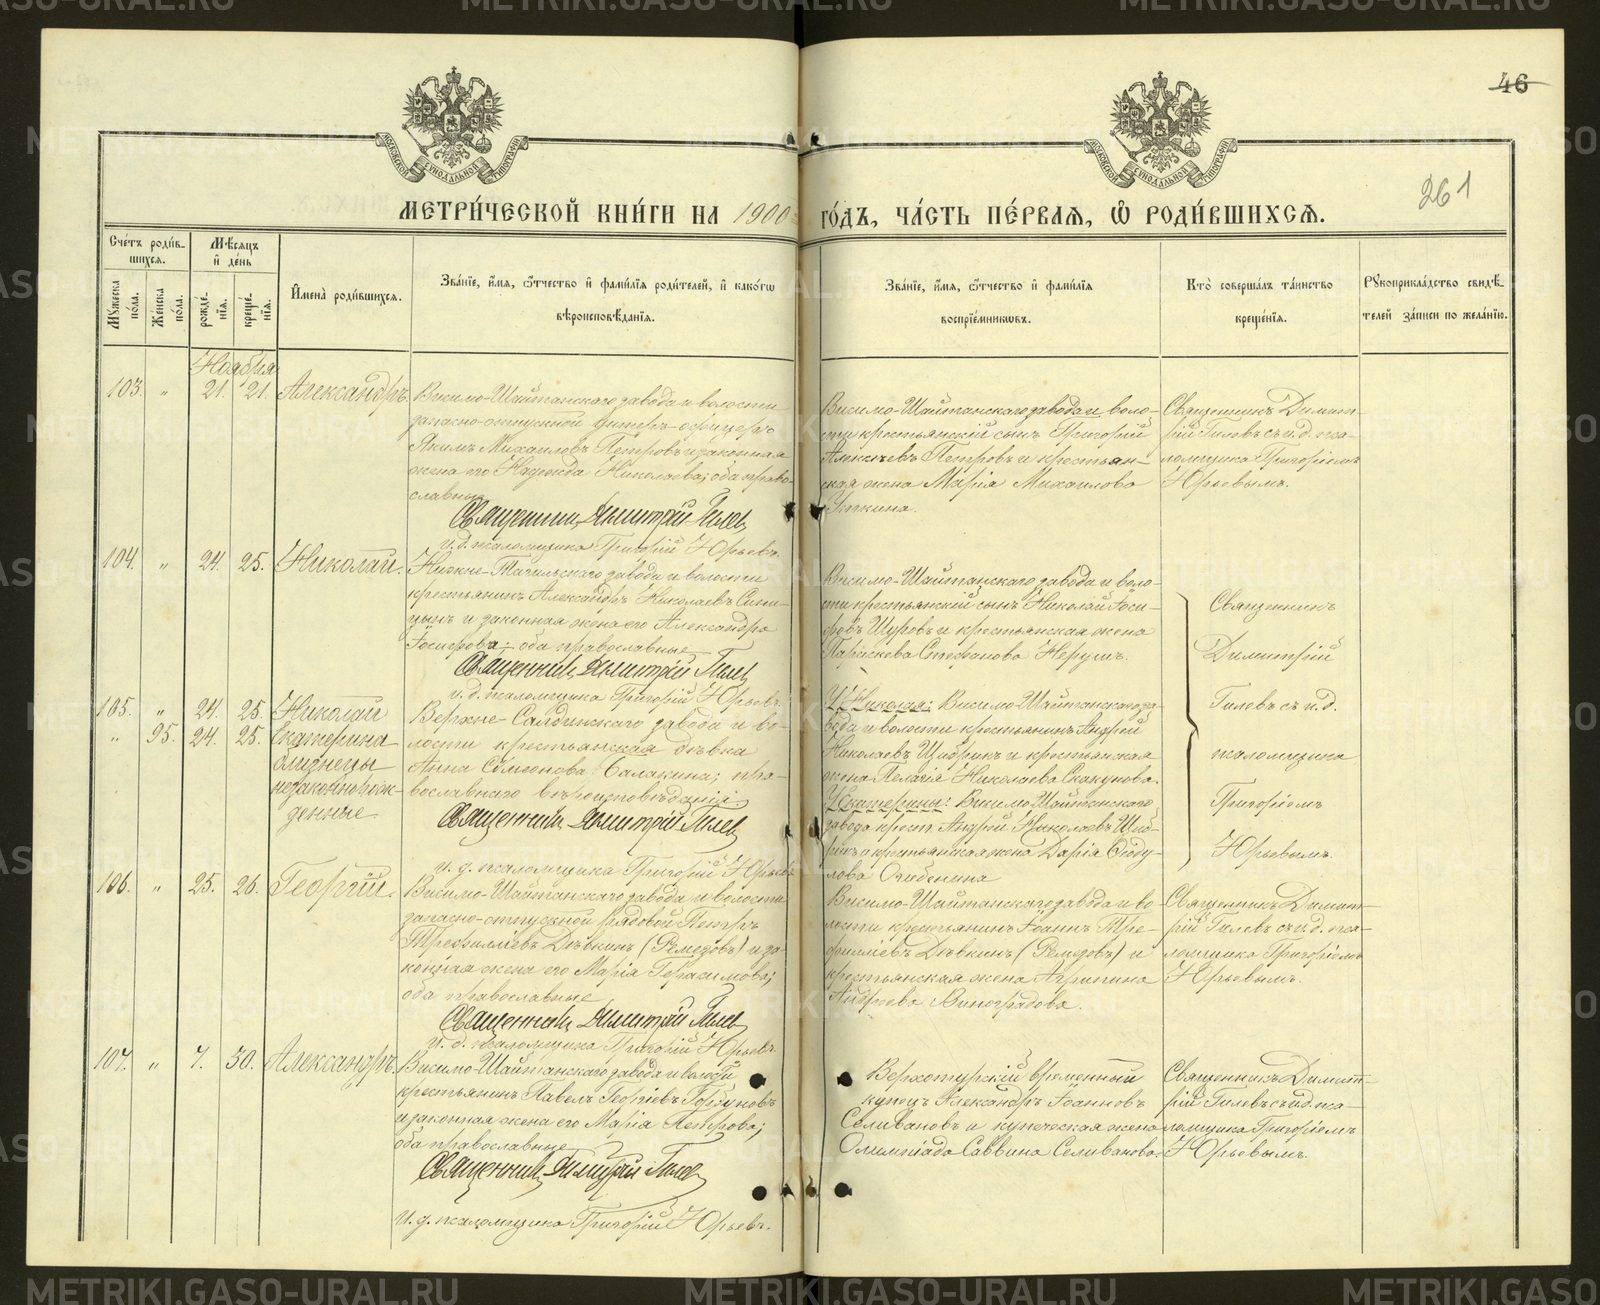 46
261
МЕТРИ́ЧЕСКОЙ КНИ́ГИ НА 1900 ГО́ДЪ, ЧА́СТЬ ПЕ́РВАЯ, Ѿ РОДИ́ВШИХСЯ.
Сче́тъ роди́вшихся.
Мѣ́сяцъ и де́нь
Му́жеска по́ла.
Же́нска по́ла.
рожде́нія.
креще́нія.
И́мена̀ роди́вшихся.
Зва́ніе, и́мя, ѻ́тчество и фами́лія роди́телей, и како́гѡ
вѣроисповѣ́данія.
Зва́ніе, и́мя, ѻ́тчество и фами́лія
воспріе́мниковъ.
Кто̀ соверша́лъ та́инство
креще́нія.
Рукоприкла́дство свидѣ́-
телей за́писи по жела́нію.
Ноября
103. " 21. 21. Александръ.
Висимо-Шайтанскаго завода и волости
запасно-отпускной унтеръ-офицеръ
Якимъ Михаиловъ Петровъ и законная
жена его Надежда Николаева; оба право-
славные
Священникъ Димитрій Гилевъ
и. д. псаломщика Григорій Юрьевъ.
Висимо-Шайтанскаго завода и воло-
сти крестьянскій сынъ Григорій
Алексѣевъ Петровъ и крестьян-
ская жена Марія Михаилова
Священникъ Димит-
рій Гилевъ съ и. д. пса-
ломщика Григоріемъ
Юрьевымъ.
104. " 24. 25. Николай.
Нижне-Тагильскаго завода и волости
крестьянинъ Александръ Николаевъ Сини-
цынъ и законная жена его Александра
Іосифова; оба православные
Священникъ Димитрій Гилевъ
и. д. псаломщика Григорій Юрьевъ.
Висимо-Шайтанскаго завода и воло-
сти крестьянскій сынъ Николай Іоси-
фовъ Щуровъ и крестьянская жена
Параскева Стефанова
Священникъ
Димитрій
Гилевъ съ и. д.
псаломщика
Григоріемъ
Юрьевымъ.
105. " 24. 25. Николай
" 95. 24. 25. Екатерина
близнецы
незаконнорож-
денные
Верхне-Салдинскаго завода и во-
лости крестьянская дѣвка
Анна Симеонова Балакина; пра-
вославнаго вѣроисповѣданія.
Священникъ Димитрій Гилевъ
и. д. псаломщика Григорій Юрьевъ
У Николая: Висимо-Шайтанскаго за-
вода и волости крестьянинъ Андрей
Николаевъ и крестьянская
жена Пелагія Николаева Скакунова.
У Екатерины: Висимо-Шайтанскаго
завода крест. Андрей Николаевъ
и крестьянская жена Дарія Ѳеоду-
лова
106. " 25. 26. Георгій.
Висимо-Шайтанскаго завода и волости
запасно-отпускной рядовой Петръ
Трефиліевъ Дѣвкинъ (Ремезовъ) и за-
конная жена его Марія Герасимова;
оба православные
Священникъ Димитрій Гилевъ
и. д. псаломщика Григорій Юрьевъ.
Висимо-Шайтанскаго завода и во-
лости крестьянинъ Іоаннъ Тре-
филіевъ Дѣвкинъ (Ремезовъ) и
крестьянская жена Агрипина
Андреева Виноградова.
Священникъ Димит-
рій Гилевъ съ и. д. пса-
ломщика Григоріемъ
Юрьевымъ.
107. " 7. 30. Александръ.
Висимо-Шайтанскаго завода и волости
крестьянинъ Павелъ Георгіевъ Горбуновъ
и законная жена его Марія Петрова;
оба православные
Священникъ Димитрій Гилевъ
и. д. псаломщика Григорій Юрьевъ.
Верхотурскій временный
купецъ Александръ Іоанновъ
Селивановъ и купеческая жена
Олимпіада Саввина Селиванова.
Священникъ Димит-
рій Гилевъ съ и. д. пса-
ломщика Григоріемъ
Юрьевымъ.
METRIKI.GASO-URAL.RU